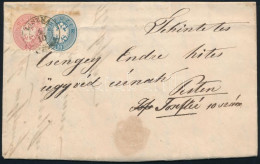 Tekintetes
Csengey Endre hites
ügyvéd úrnak
Pesten
József tér 10 szám